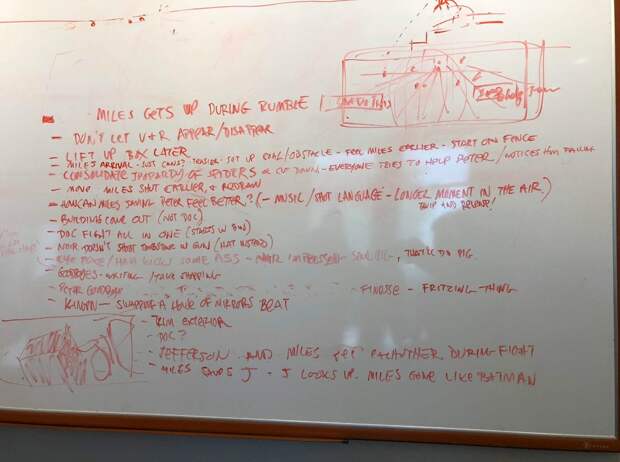 MILES GETS UP DURING RUMBLE
- DON'T LET V+R APPEAR/DISAPPEAR
- LIFT UP BOX LATER
- MILES ARRIVAL - TENSION - SET UP GOAL/OBSTACLE - FEEL MILES EARLIER - START ON FENCE
- CONSOLIDATE JEOPARDY OF SPIDERS OR CUT DOWN - EVERYONE TRIES TO HELP PETER/NOTICES HIM
- MOVE MILES SHOT EARLIER, & REDRAW
- HOW CAN MILES SAVING PETER FEEL BETTER? (- MUSIC/SHOT LANGUAGE - LONGER MOMENT IN THE AIR)
- BUILDING COME OUT (NOT DOC)
- DOC FIGHT ALL IN ONE (STARTS W BUS)
- NOIR DOESN'T SHOOT W GUN (HAT INSTEAD)
/HAM KICKS SOME ASS - NOIR, THAT'LL DO PIG.
- GOODBYES - WRITING/
- PETER GOODBYE
FINESSE - FRITZING - THING
- KINGPIN - HALL OF MIRRORS BEAT
- TRIM EXTERIOR
- DOC?
- JEFFERSON AND MILES GET DURING FIGHT
- MILES SAVES J - J LOOKS UP. MILES GONE LIKE BATMAN